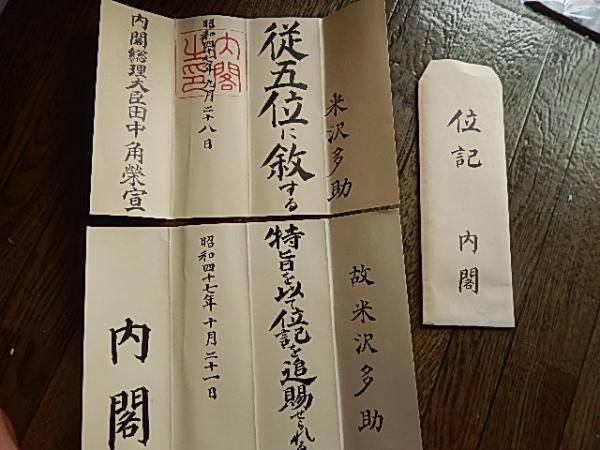 米沢多助
従五位に敘する
昭和四十七年九月二十八日
内閣之印
内閣総理大臣田中角榮宣
故米沢多助
特旨を以て位記を追賜せられる
昭和四十七年十月二十一日
内閣
位記 内閣